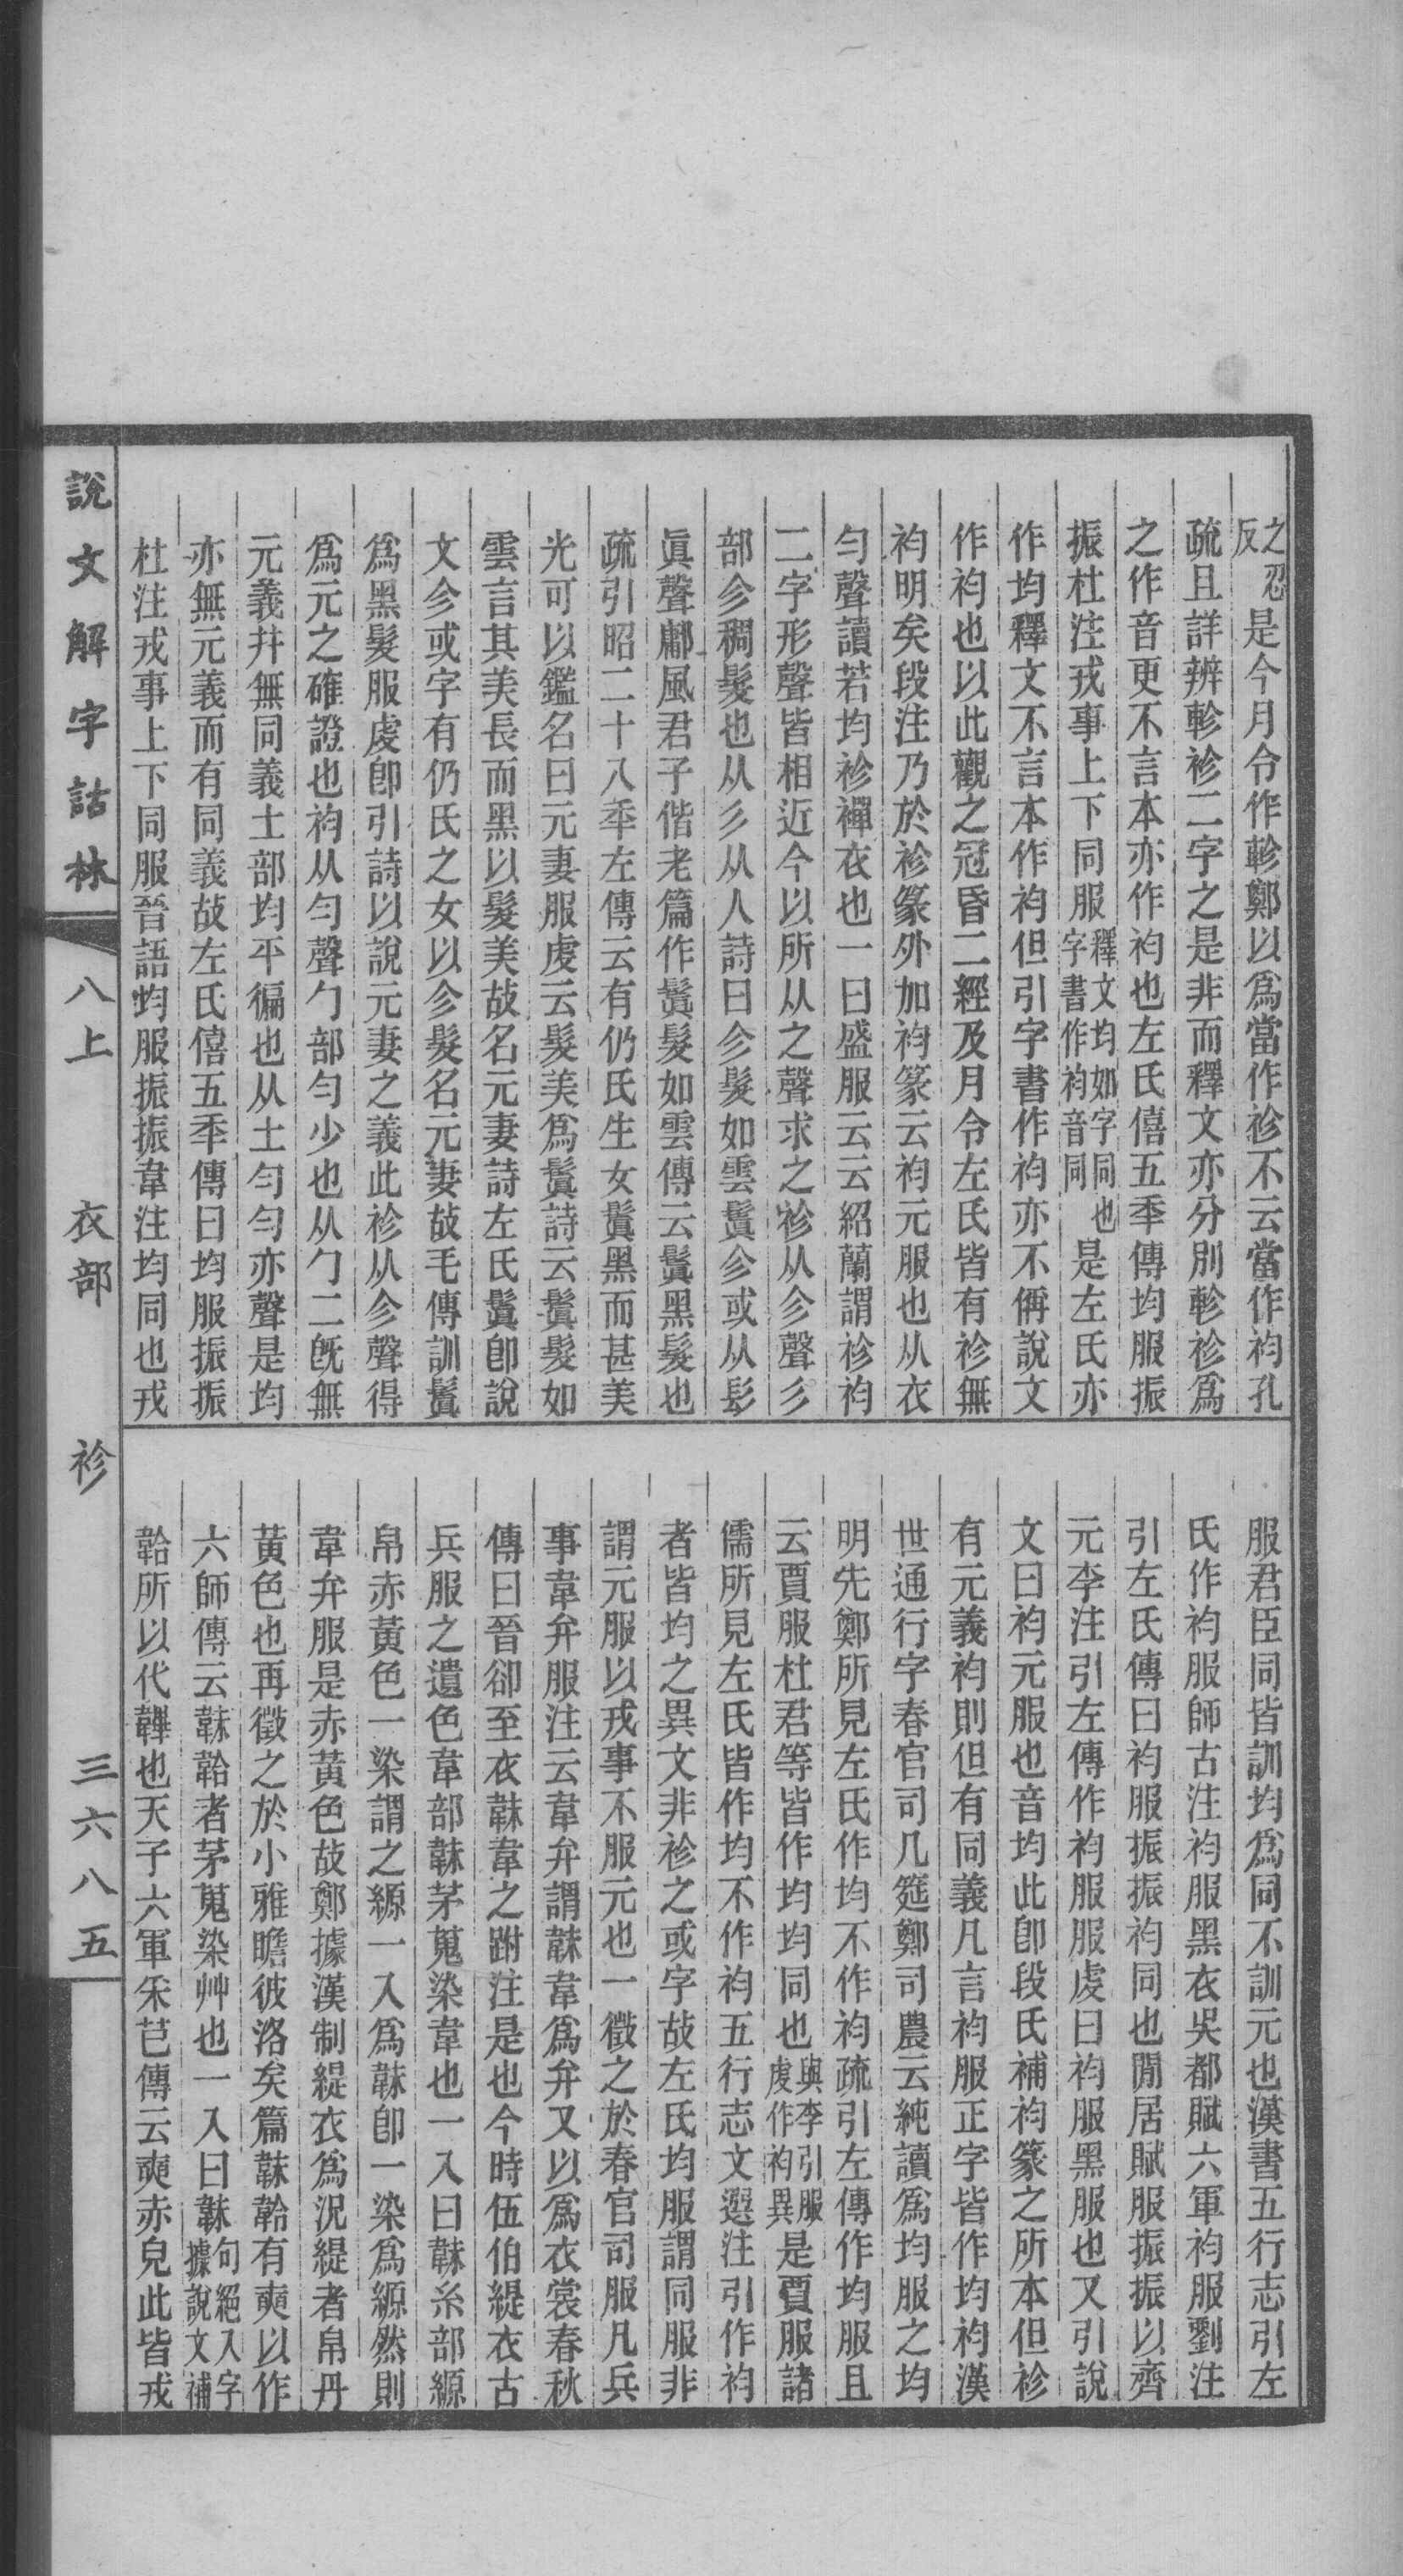 之忍反是今月令作軫鄭以爲當作袗不云當作袀孔
疏且詳辨軫袗二字之是非而釋文亦分別軫袗爲
之作音更不言本亦作袀也左氏僖五秊傳均服振
振杜注戎事上下同服釋文均如字同也字書作袀音同是左氏亦
作均釋文不言本作袀但引字書作袀亦不偁說文
作袀也以此觀之冠昏二經及月令左氏皆有袗無
袀明矣段注乃於袗篆外加袀篆云袀元服也从衣
勻聲讀若均袗襌衣也一曰盛服云云紹蘭謂袗袀
二字形聲皆相近今以所从之聲求之袗从㐱聲彡
部㐱稠髮也从彡从人詩曰㐱髮如雲鬒㐱或从髟
眞聲鄘風君子偕老篇作鬒髮如雲傳云鬒黑髮也
疏引昭二十八秊左傳云有仍氏生女鬒黑而甚美
光可以鑑名曰元妻服虔云髮美爲鬒詩云鬒髮如
雲言其美長而黑以髮美故名元妻詩左氏鬒卽說
文㐱或字有仍氏之女以㐱髮名元妻故毛傳訓鬒
爲黑髮服虔卽引詩以說元妻之義此袗从㐱聲得
爲元之確證也袀从勻聲勹部勻少也从勹二旣無
元義幷無同義土部均平徧也从土勻勻亦聲是均
亦無元義而有同義故左氏僖五秊傳曰均服振振
杜注戎事上下同服晉語均服振振韋注均同也戎
服君臣同皆訓均爲同不訓元也漢書五行志引左
氏作袀服師古注袀服黑衣吳都賦六軍袀服劉注
引左氏傳曰袀服振振袀同也閒居賦服振振以齊
元李注引左傳作袀服服虔曰袀服黑服也又引說
文曰袀元服也音均此卽段氏補袀篆之所本但袗
有元義袀則但有同義凡言袀服正字皆作均袀漢
世通行字春官司几筵鄭司農云純讀爲均服之均
明先鄭所見左氏作均不作袀疏引左傳作均服且
云賈服杜君等皆作均均同也與李引服虔作袀異是賈服諸
儒所見左氏皆作均不作袀五行志文選注引作袀
者皆均之異文非袗之或字故左氏均服謂同服非
謂元服以戎事不服元也一徵之於春官司服凡兵
事韋弁服注云韋弁謂韎韋爲弁又以爲衣裳春秋
傳曰晉卻至衣韎韋之跗注是也今時伍伯緹衣古
兵服之遺色韋部韎茅蒐染韋也一入曰韎糸部縓
帛赤黃色一染謂之縓一入爲韎卽一染爲縓然則
韋弁服是赤黃色故鄭據漢制緹衣爲況緹者帛丹
黃色也再徵之於小雅瞻彼洛矣篇韎韐有奭以作
六師傳云韎韐者茅蒐染艸也一入曰韎句絕入字據說文補
韐所以代韠也天子六軍采芑傳云奭赤皃此皆戎
說文解字詁林
八上
衣部
袗
三六八五